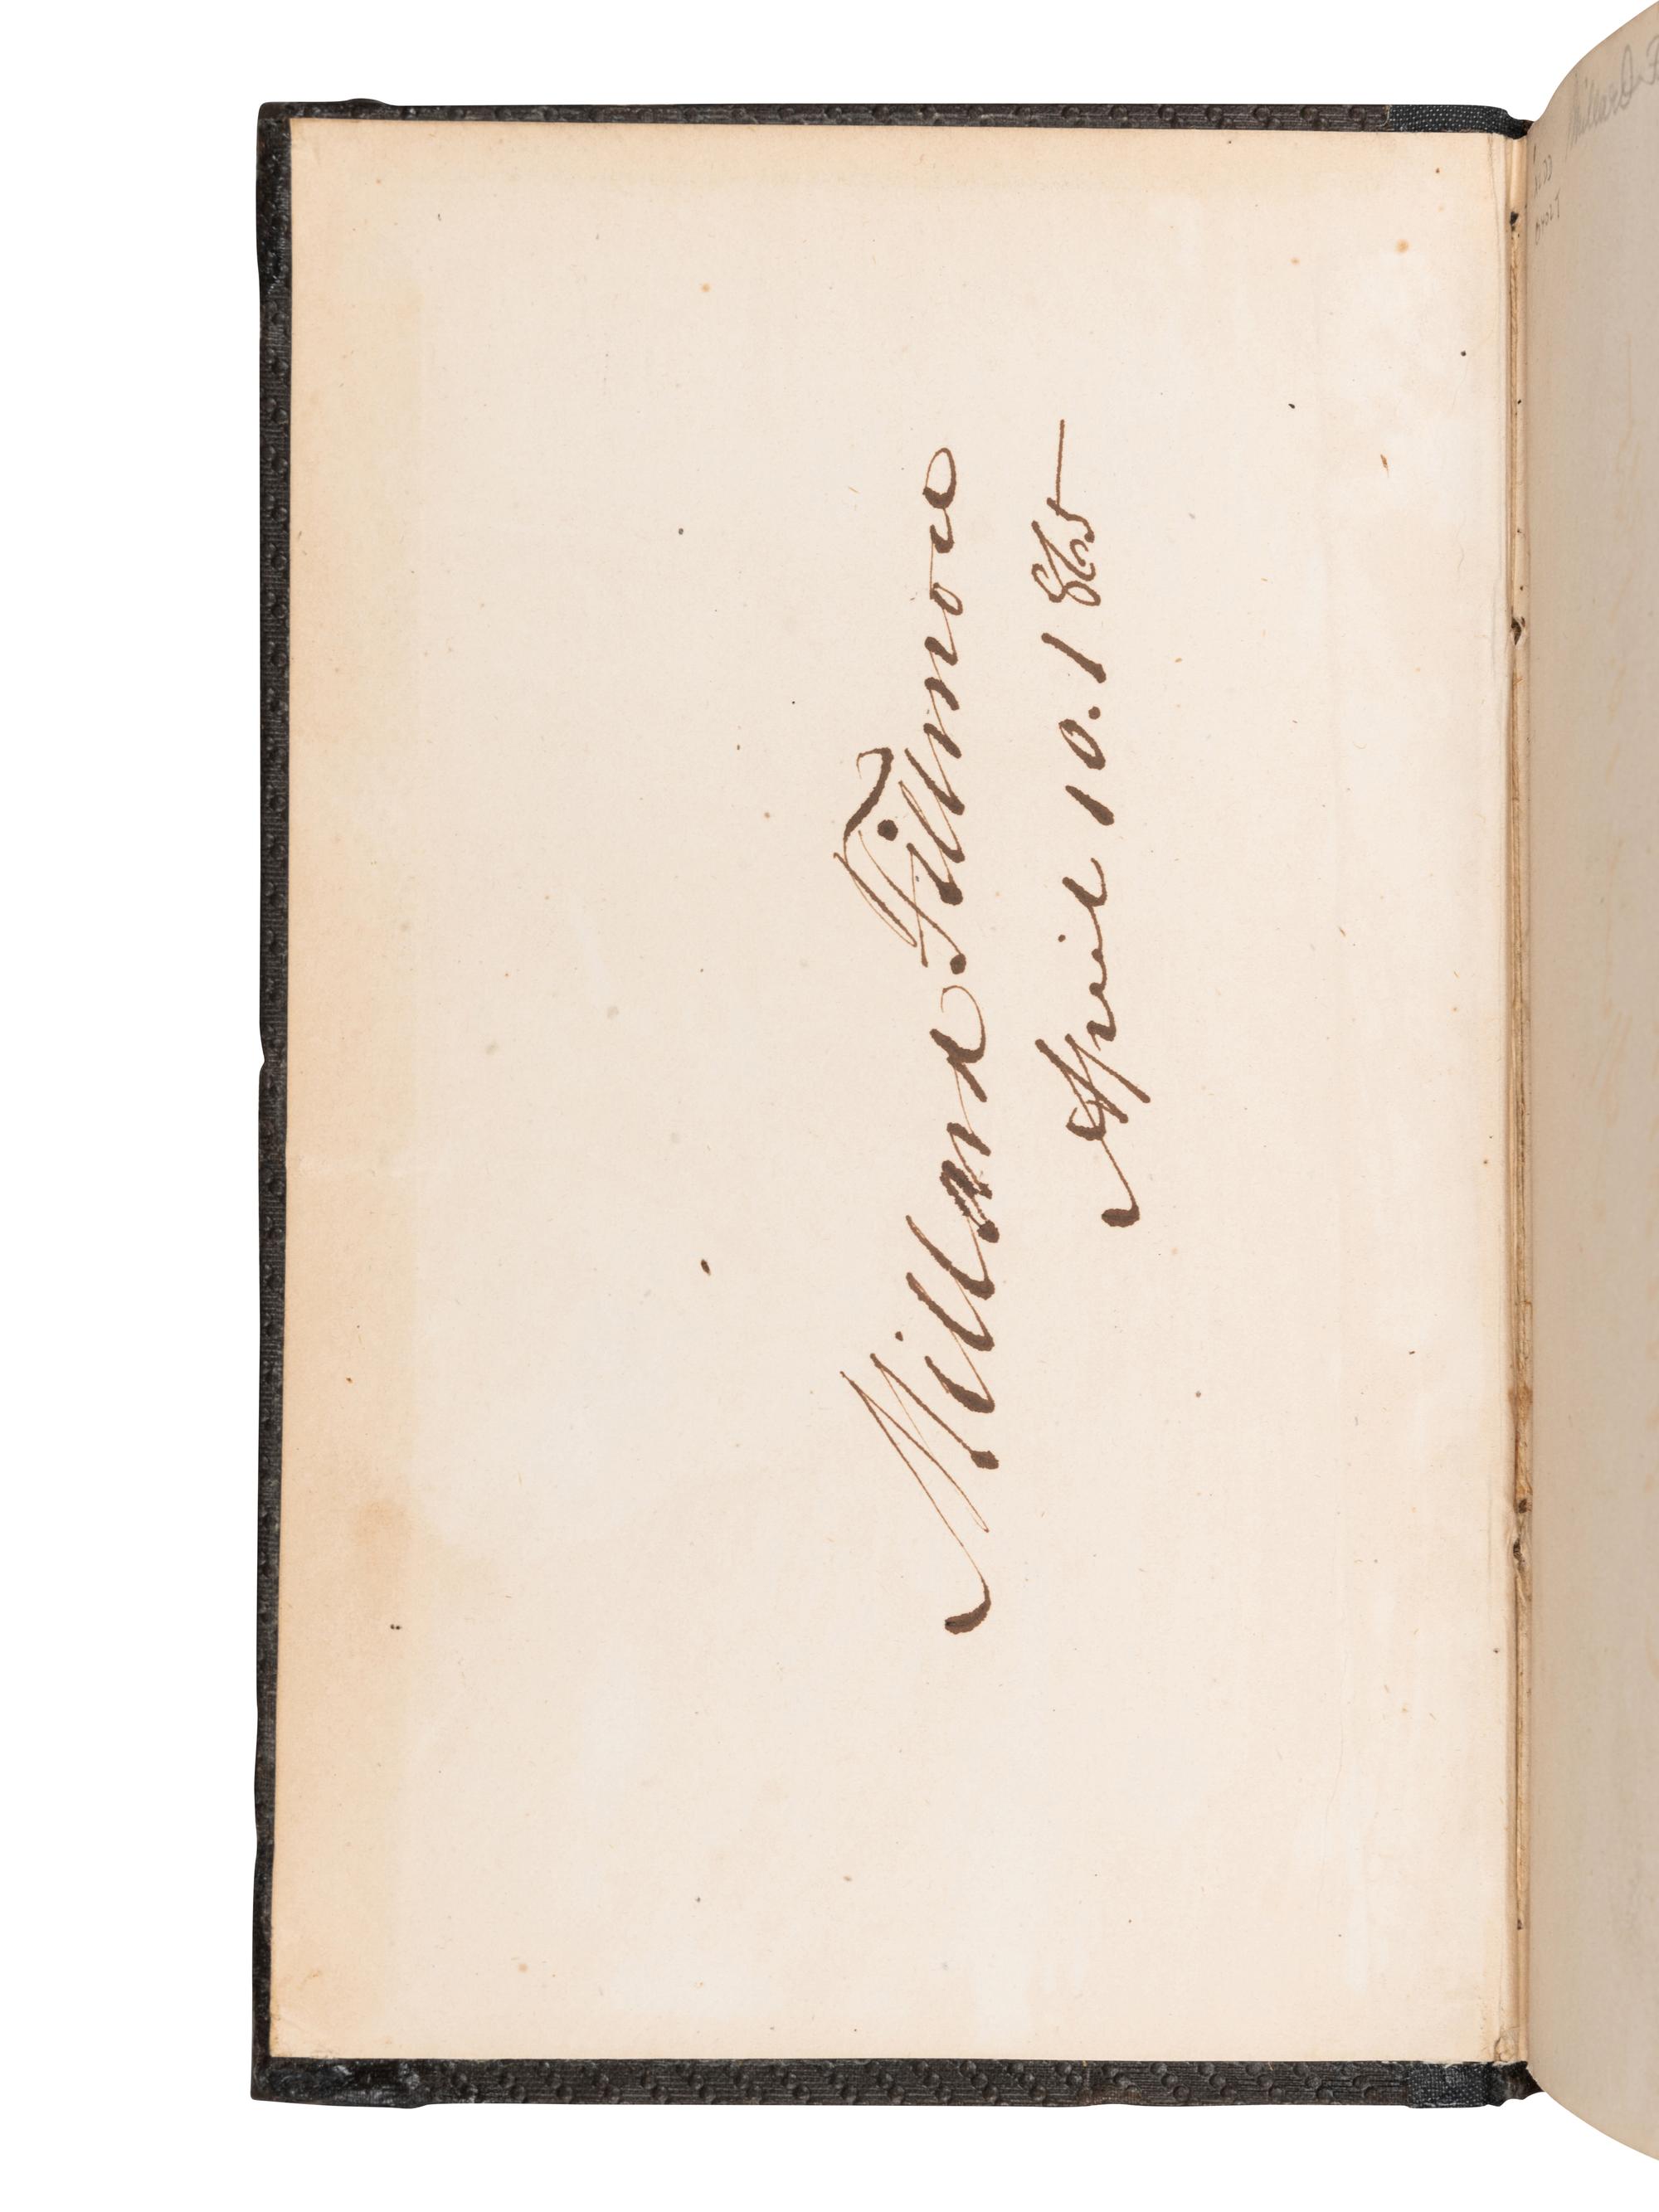 Millard Fillmore
April 10. 1865
Millard F